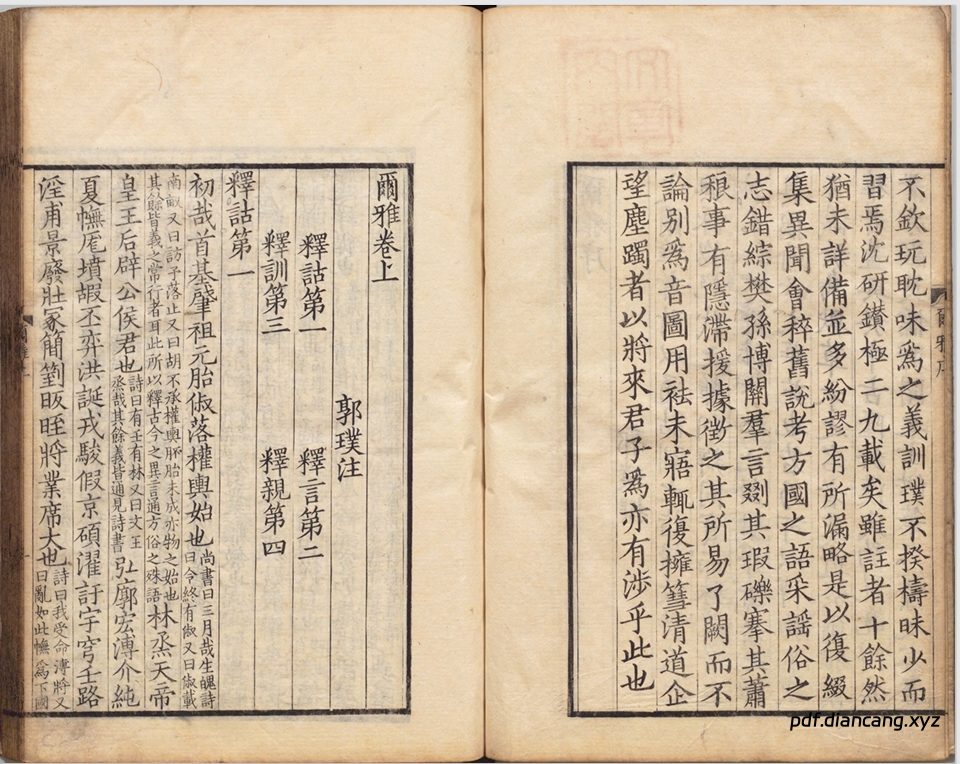 不欽玩耽味爲之義訓璞不揆檮昧少而
習焉沈研鑚極二九載矣雖註者十餘然
猶未詳備並多紛謬有所漏略是以復綴
集異聞會稡舊說考方國之語采謡俗之
志錯綜樊孫博關羣言剟其瑕礫搴其蕭
稂事有隱滯援據徵之其所易了闕而不
論別爲音圖用袪未寤輒復擁篲清道企
望塵躅者以將來君子爲亦有涉乎此也
爾雅序
爾雅卷上
郭璞注
釋詁第一 釋言第二
釋訓第三 釋親第四
釋詁第一
初哉首基肈祖元胎俶落權輿始也尚書曰三月哉生魄詩曰令終有俶又曰俶載
南畝又曰訪予落止又曰胡不承權輿胚胎未成亦物之始也其餘皆義之常行者耳此所以釋古今之異言通方俗之殊語林烝天帝
皇王后辟公侯君也詩曰有壬有林又曰文王烝哉其餘義皆通見詩書弘廓宏溥介純
夏幠厖墳嘏丕弈洪誕戎駿假京碩濯訏宇穹壬路
淫甫景廢壯冢簡箌昄晊將業席大也詩曰我受命溥將又曰亂如此幠爲下國
pdf.diancang.xyz